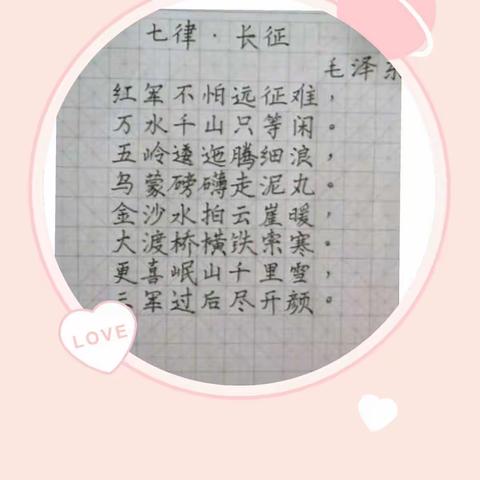 七律·长征
毛泽东
红军不怕远征难，
万水千山只等闲。
五岭逶迤腾细浪，
乌蒙磅礴走泥丸。
金沙水拍云崖暖，
大渡桥横铁索寒。
更喜岷山千里雪，
三军过后尽开颜。
LOVE